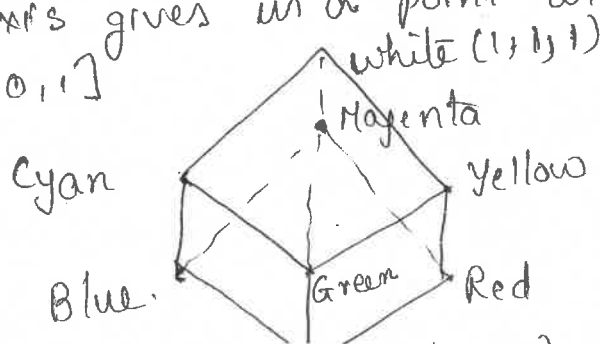 gives us a point
0, 1]
white (1, 1, 1)
Magenta
Cyan
Yellow
Blue.
Green
Red